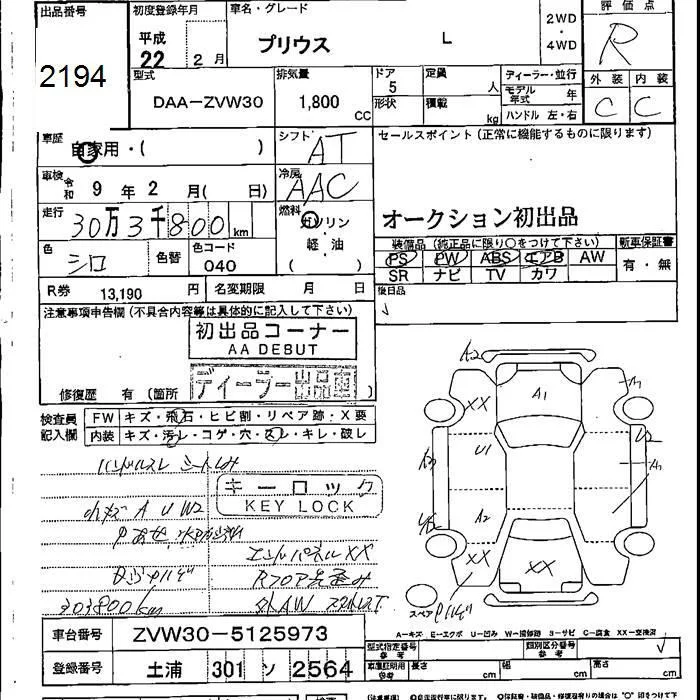 出品番号
2194
初度登録年月
平成
22 2月
車名・グレード
プリウス L
2WD
・
4WD
評価点
R
型式
DAA-ZVW30
排気量
1,800 CC
ドア
5
形状
定員 人
積載 kg
ディーラー・並行
モデル年式 年
ハンドル 左・右
外装 内装
C C
車歴
自家用・( )
シフト
AT
セールスポイント(正常に機能するものに限ります)
オークション初出品
車検 令和 9年 2月( 日)
冷房
AAC
走行
30万3千800km
燃料
ガソリン
・
軽・油
( )
色
シロ
色替
色コード
040
装備品(純正品に限り○をつけて下さい)
PS PW ABS エアB AW
SR ナビ TV カワ
新車保証書
有・無
R券 13,190 円
名変期限 月 日
後日品
注意事項申告欄(不具合内容等は具体的に記入して下さい)
初出品コーナー
AA DEBUT
ディーラー出品車
修復歴 有(箇所 )
検査員
記入欄
FW キズ・飛石・ヒビ割・リペア跡・X要
内装 キズ・汚レ・コゲ・穴・スレ・キレ・破レ
ハンドルスレ シートしみ
キーロック
KEY LOCK
小キズ A U W2
エンドパネルXX
303800km
A2
A1
XX
U1
A2
XX
XX
スペア
A-キズ E-エクボ U-凹み W-補修跡 S-サビ C-腐食 XX-交換済
車台番号 ZVW30-5125973
登録番号 土浦 301 ソ 2564
型式指定番号
参考
類別区分番号
参考
車庫証明用
参考
長さ cm
幅 cm
高さ cm